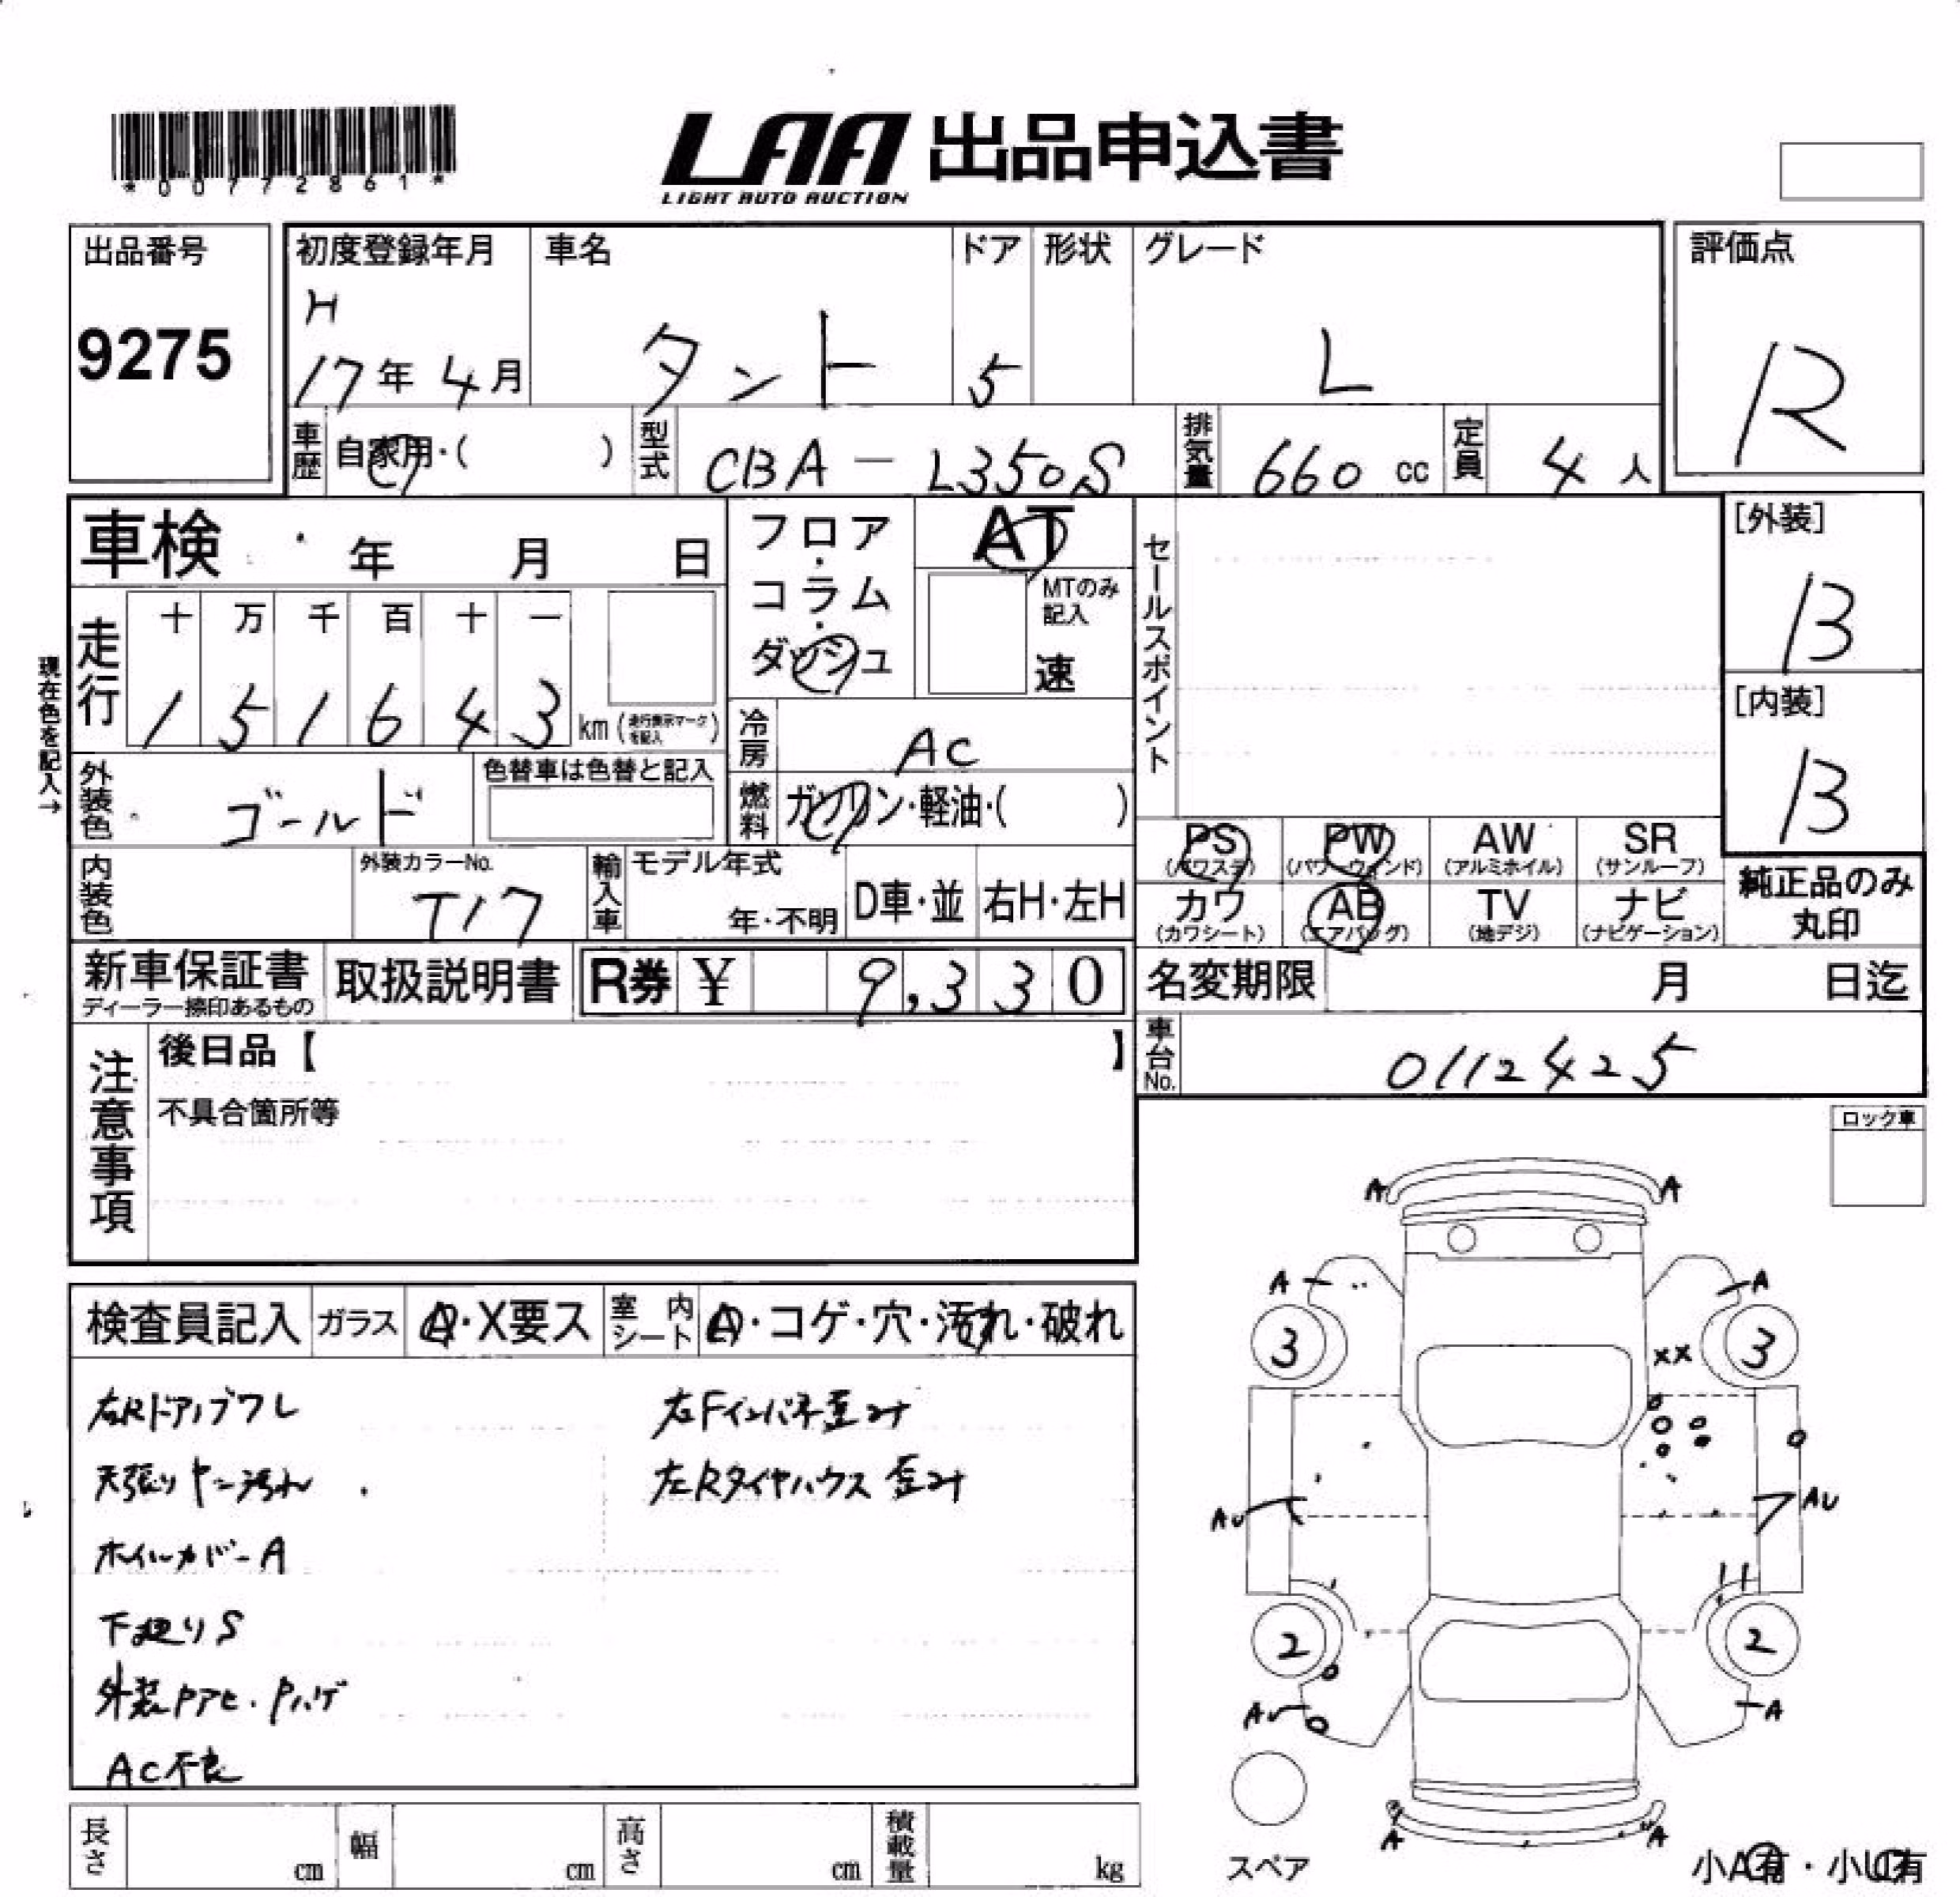 *00772861*
LAA 出品申込書
LIGHT AUTO AUCTION
出品番号
9275
初度登録年月
H
17年 4月
車名
タント
ドア
5
形状
グレード
L
評価点
R
車歴
自家用・( )
型式
CBA - L350S
排気量
660 cc
定員
4 人
車検 年 月 日
フロア・コラム・ダッシュ
AT
MTのみ記入
速
セールスポイント
[外装]
B
[内装]
B
現在色を記入→
走行
十 万 千 百 十 一
1 5 1 6 4 3 km (走行表示マークを記入)
冷房
AC
外装色
ゴールド
色替車は色替と記入
燃料
ガソリン・軽油・( )
PS (パワステ)
PW (パワーウィンド)
AW (アルミホイル)
SR (サンルーフ)
カワ (カワシート)
AB (エアバッグ)
TV (地デジ)
ナビ (ナビゲーション)
純正品のみ丸印
内装色
外装カラーNo.
T17
輸入車
モデル年式
年・不明
D車・並
右H・左H
新車保証書
ディーラー捺印あるもの
取扱説明書
R券 ¥ 9,330
名変期限 月 日迄
車台No.
0112425
注意事項
後日品【 】
不具合箇所等
ロック車
検査員記入
ガラス
A・X要ス
室内シート
A・コゲ・穴・汚れ・破れ
右Rドアノブワレ
天張りヤニ汚れ
ホイルカバーA
下廻りS
外装Pアセ・Pハゲ
AC不良
左Fインパネ歪み
左Rタイヤハウス歪み
A A
A A
3 3
XX
AU AU
2 2
AU A
A A
スペア
小A有・小U有
長さ cm
幅 cm
高さ cm
積載量 kg